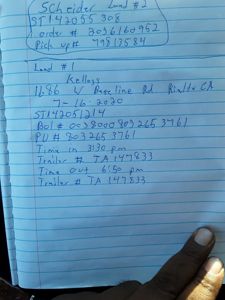 Scheider Load #2
ST142055308
order # 2036160952
Pick up# 79813584
Load #1
Kellogs
1686 W Baseline Rd Rialto CA
7-16-2020
ST142051214
Bol # 0038000803265 3761
PU# 803265 3761
Time in 3:30 pm
Trailer # TA 147833
Time out 6:50 pm
Trailer # TA 147833